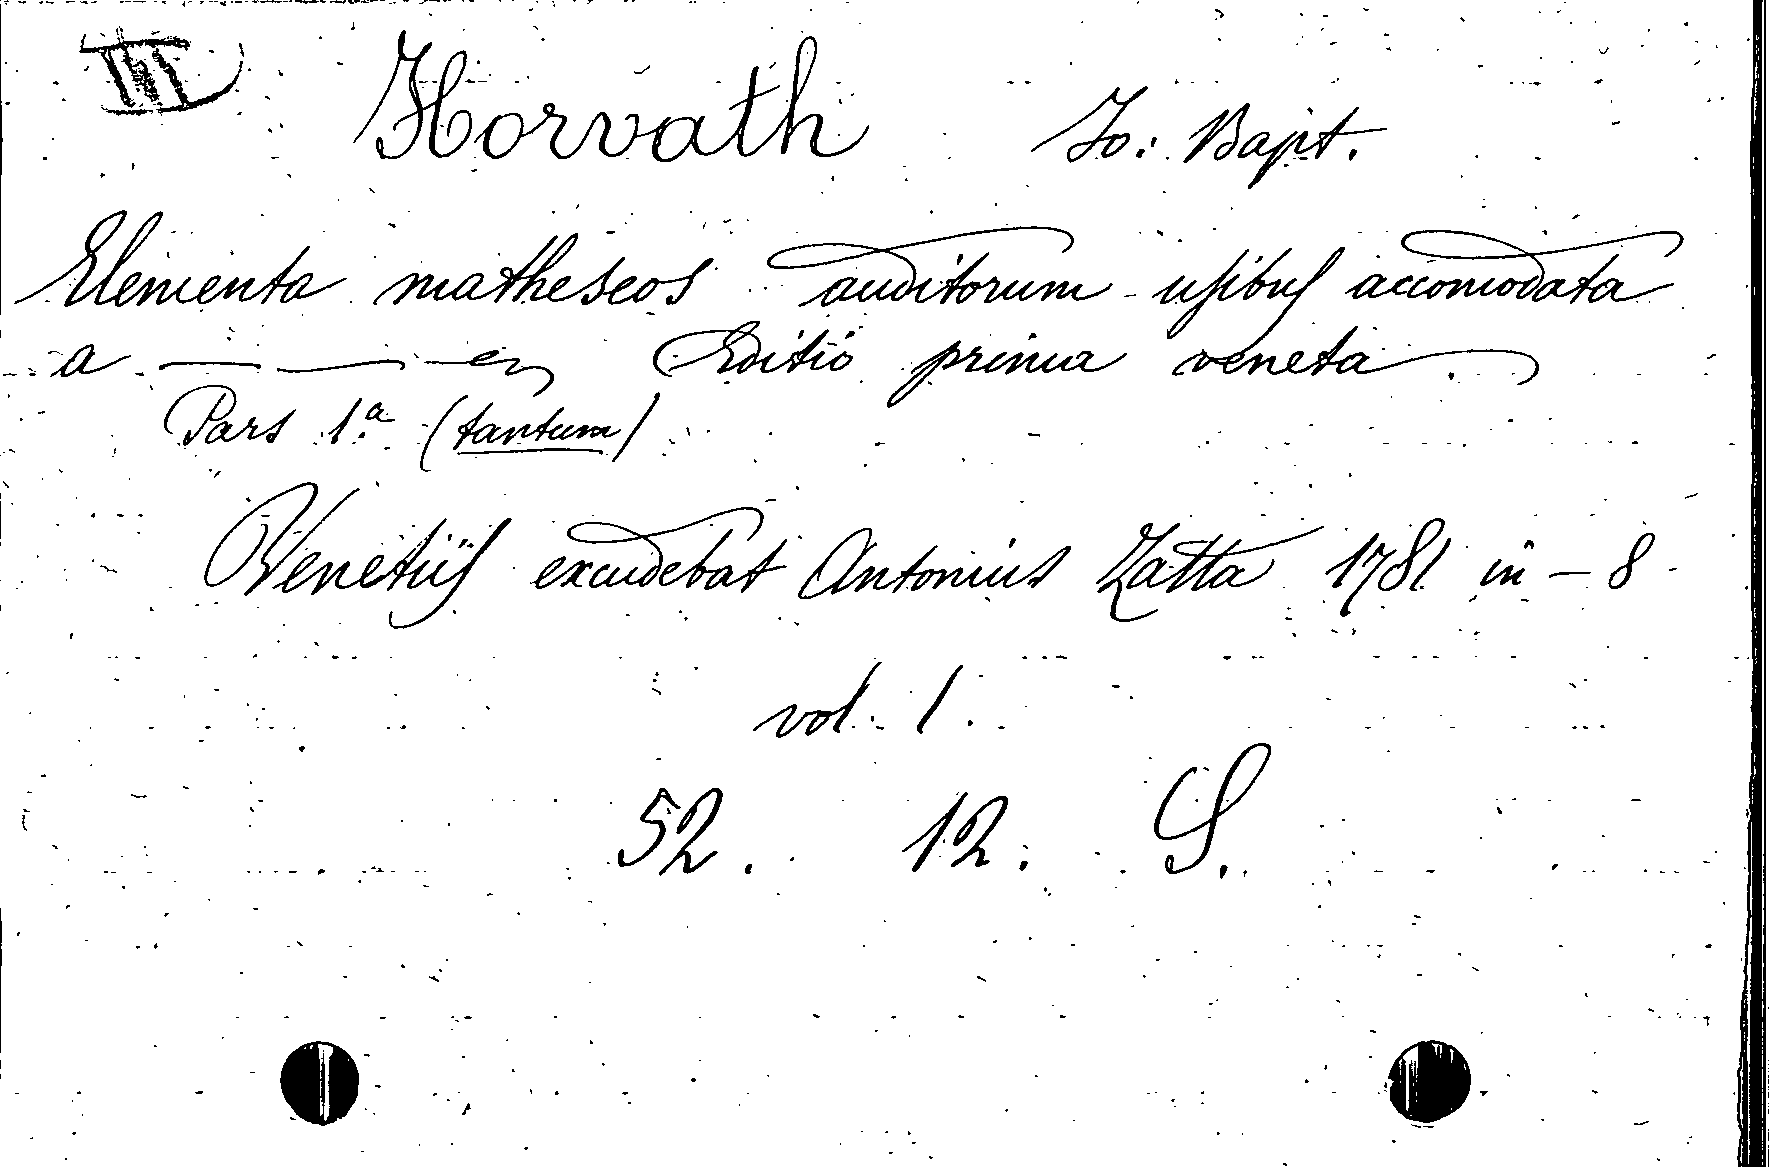 III Horvath Jo: Bapt.
Elementa matheseos auditorum usibus accomodata
a — — — Editio prima veneta
Pars 1.a (tantum)
Venetiis excudebat Antonius Zatta 1781 in - 8
vol. 1.
52. 12. S.